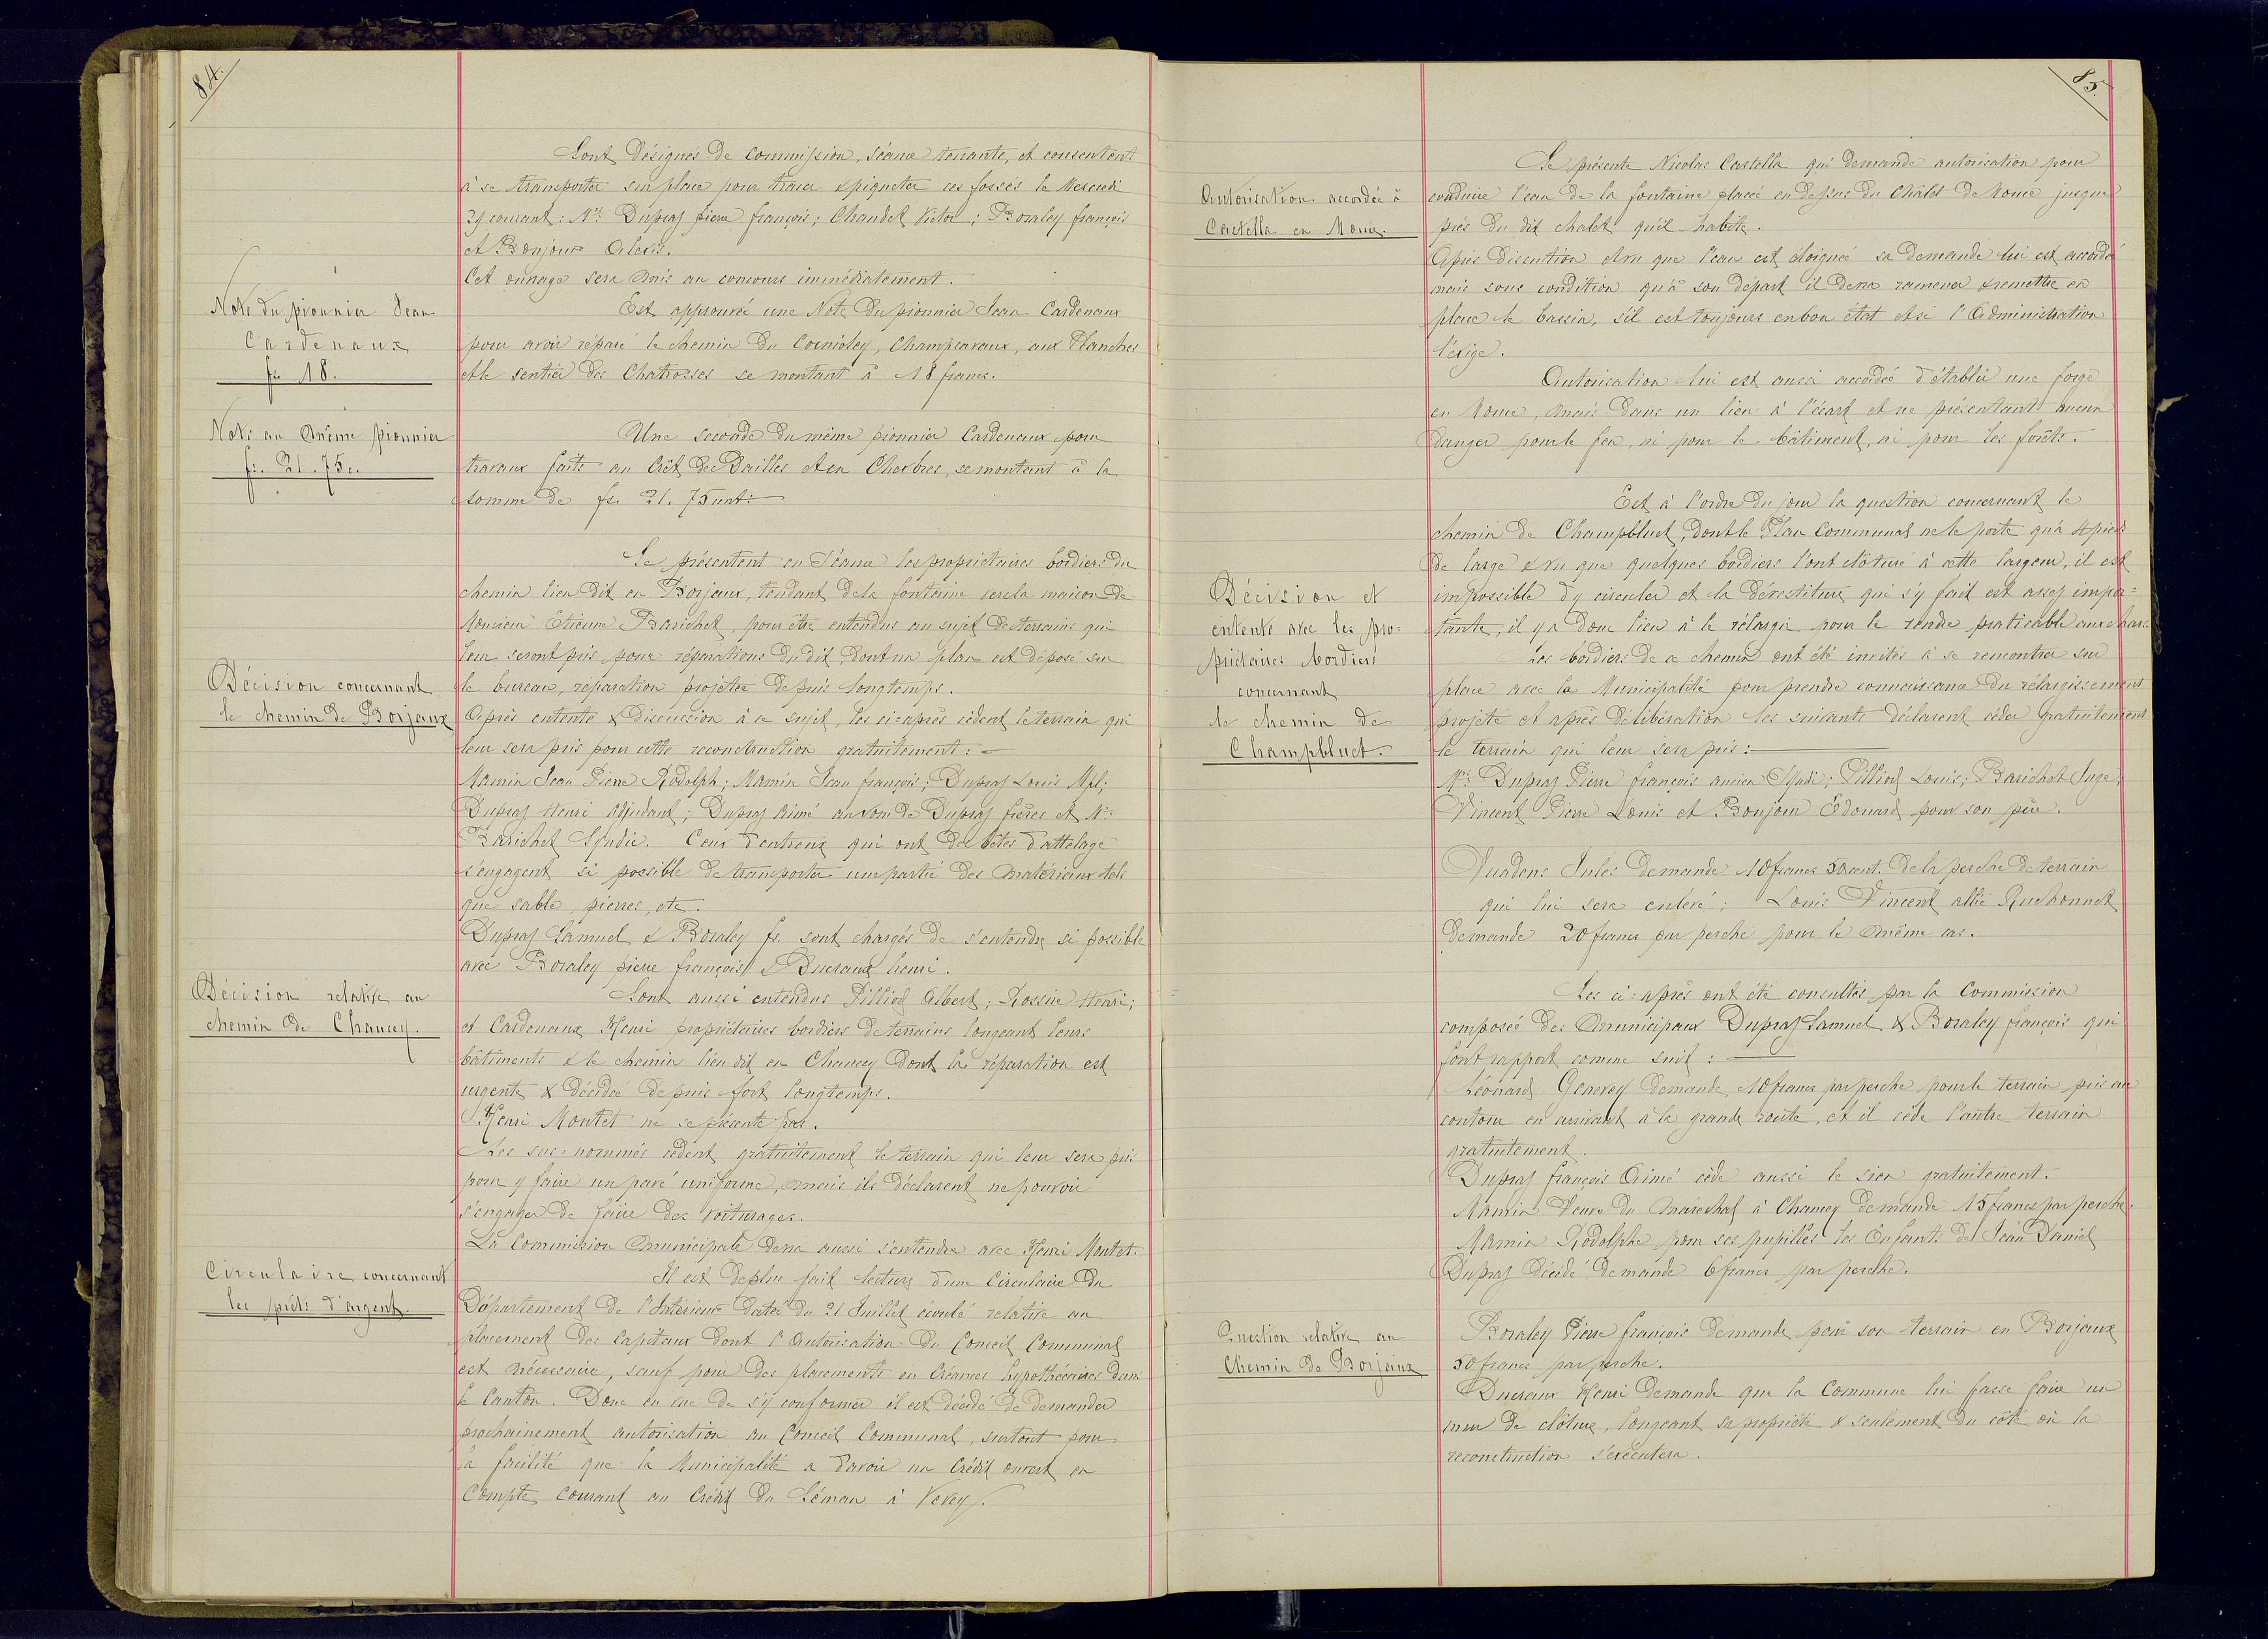 84.
Sont désignés de commission, séance tenante, et consentent
à se transporter sur place pour tracer & piqueter ces fossés le Mercredi
29 courant: Mrs Dupraz pierre françois; Chaudet Victor; Bovaley françois
et Bonjour Alexis.
Cet ouvrage sera mis au concours immédiatement.
Note du pionnier Jean
Cardenaux
fr. 18.
Est approuvée une Note du pionnier Jean Cardenaux
pour avoir réparé le chemin du Cornioley, Champsavaux, aux Planches
et le sentier des Chatrosses se montant à 18 francs.
Note au même pionnier
fr. 21.75c.
Une seconde du même pionnier Cardenaux pour
travaux faits au Crêt des Dailles et en Cherbres, se montant à la
somme de frs. 21.75 cent:
Décision concernant
le chemin de Borjaux
Se présentent en Séance les propriétaires bordiers du
chemin lieu dit en Borjaux, tendant de la fontaine vers la maison de
Monsieur Etienne Barichet, pour être entendus au sujet des terrains qui
leur seront pris pour réparations du dit, dont un plan est déposé sur
le bureau, réparation projetée depuis longtemps.
Après entente & discussion à ce sujet, les ci-après cèdent le terrain qui
leur sera pris pour cette reconstruction gratuitement:
Mamin Jean Pierre Rodolph; Mamin Jean françois; Dupraz Louis Mpl;
Dupraz Henri adjudant; Dupraz Aimé au nom de Dupraz frères et Mr
Barichet Syndic. Ceux d'entreux qui ont des bêtes d'attelage
s'engagent si possible de transporter une partie des matériaux tels
que sable, pierres, etc.
Dupraz Samuel & Bovaley fs. sont chargés de s'entendre si possible
avec Bovaley pierre françois & Ducraux henri.
Décision relative au
chemin de Chancey.
Sont aussi entendus Pilliod Albert; Rossire Henri;
et Cardenaux Henri propriétaires bordiers de terrains longeant leurs
bâtiments & le chemin lieu dit en Chancey dont la réparation est
urgente & décidée depuis fort longtemps.
Henri Montet ne se présente pas.
Les sus-nommés cèdent gratuitement le terrain qui leur sera pris
pour y faire un pavé uniforme, mais ils déclarent ne pouvoir
s'engager de faire des voiturages.
La Commission municipale devra aussi s'entendre avec Henri Montet.
Circulaire concernant
les prêts d'argent.
Il est deplus fait lecture d'une Circulaire du
Département de l'Intérieur datée du 21 Juillet écoulé relative au
placement des Capitaux dont l'Autorisation du Conseil Communal
est nécessaire, sauf pour des placements en Créances hypothécaires dans
le Canton. Donc en vue de s'y conformer il est décidé de demander
prochainement autorisation au Conseil Communal, surtout pour
la facilité que la Municipalité a d'avoir un Crédit ouvert en
Compte Courant au Crédit du Léman à Vevey.
85.
Autorisation accordée à
Castella en Moue.
Se présente Nicolas Castella qui demande autorisation pour
conduire l'eau de la fontaine placée en dessus du Châlet de Moue jusque
près du dit chalet qu'il habite.
Après discution et vu que l'eau est éloignée sa demande lui est accordée
mais sous condition qu'à son départ il devra ramener & remettre en
place le bassin, s'il est toujours en bon état et si l'Administration
l'exige.
Autorisation lui est aussi accordée d'établir une forge
en Moue, mais dans un lieu à l'écart et ne présentant aucun
danger pour le feu, ni pour le bâtiment, ni pour les forêts.
Décision et
entente avec les pro=
priétaires bordiers
concernant
le chemin de
Champbluet.
Est à l'ordre du jour la question concernant le
chemin de Champbluet, dont le Plan Communal ne le porte qu'à 4 pieds
de large & vu que quelques bordiers l'ont clôturé à cette largeur, il est
impossible d'y circuler et la dévestiture qui s'y fait est assez impor=
tante, il y a donc lieu à le rélargir pour le rendre praticable aux chars.
Les bordiers de ce chemin ont été invités à se rencontrer sur
place avec la Municipalité pour prendre connaissance du rélargissement
projeté et après délibération les suivants déclarent céder gratuitement
le terrain qui leur sera pris:
Mrs Dupraz Pierre françois ancien Syndic; Pilliod Louis; Barichet Juge;
Vincent Pierre Louis et Bonjour Edouard pour son père.
Vuadens Jules demande 10 francs 50 cent. de la perche de terrain
qui lui sera enlevé; Louis Vincent allié Ruchonnet
demande 20 francs par perche pour le même cas.
Les ci-après ont été consultés par la Commission
composée des Municipaux Dupraz Samuel & Bovaley françois qui
font rapport comme suit:
Léonard Genevey demande 10 francs par perche pour le terrain pris au
contour en arrivant à la grande route, et il cède l'autre terrain
gratuitement.
Dupraz françois Aimé cède aussi le sien gratuitement.
Mamin Veuve du Maréchal à Chancey demande 15 francs par perche.
Mamin Rodolphe pour ses pupilles les Enfants de Jean Daniel
Dupraz décédé demande 6 francs par perche.
Question relative au
Chemin de Borjaux
Bovaley Pierre françois demande pour son terrain en Borjaux
50 francs par perche.
Ducraux Henri demande que la Commune lui fasse faire un
mur de clôture, longeant sa propriété & seulement du côté où la
reconstruction s'exécutera.